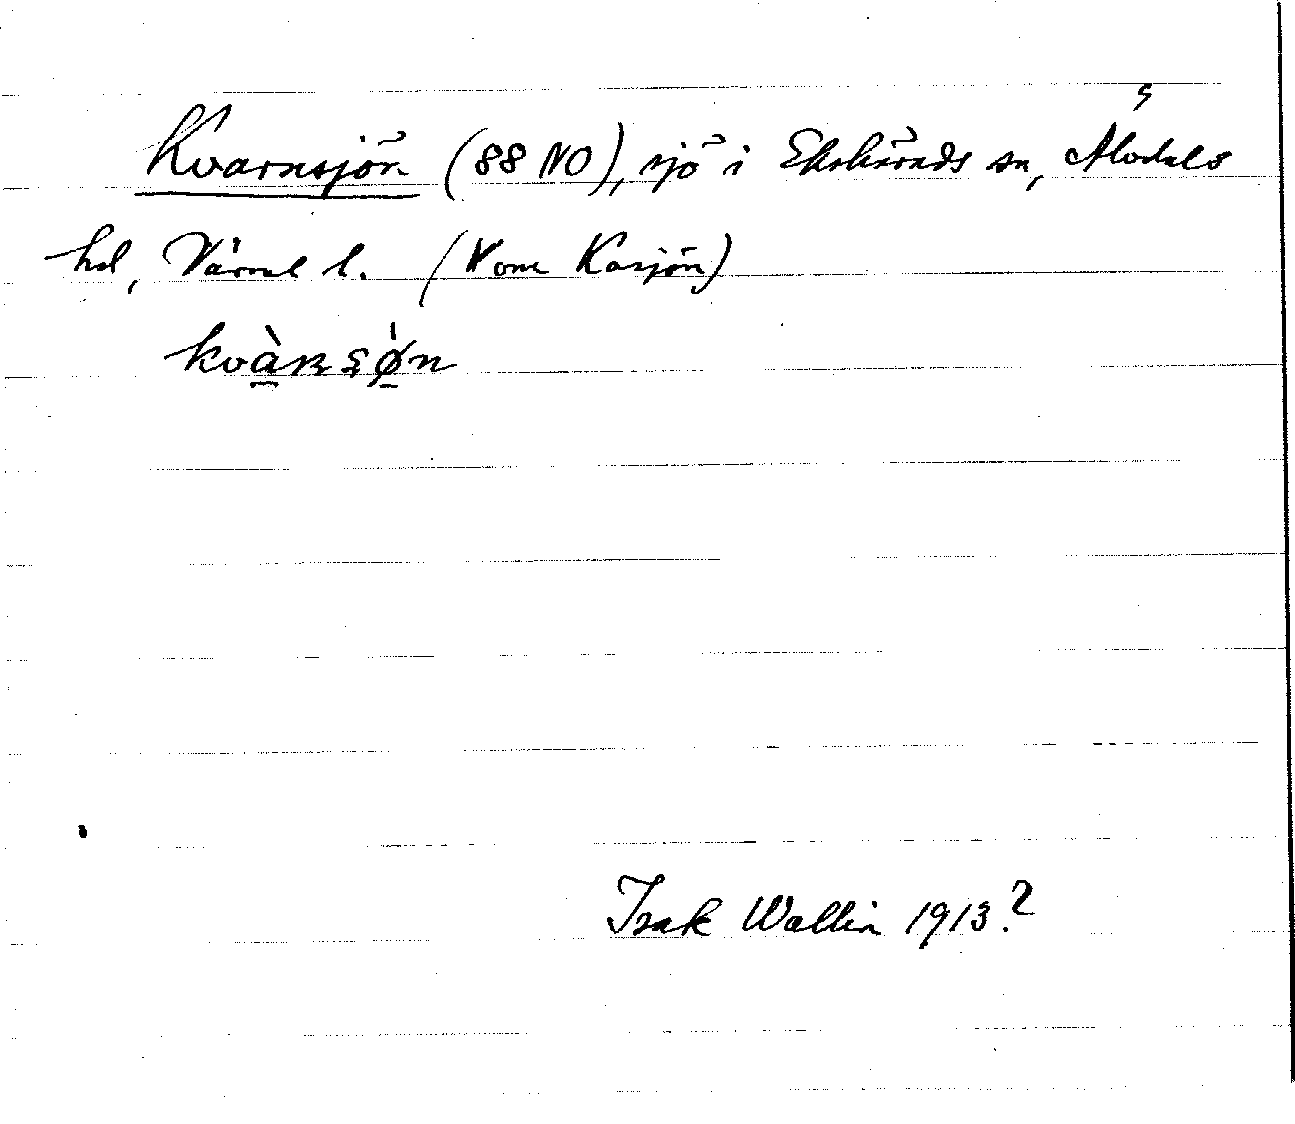 Kvarnsjön (88 NO), sjö i Ekshärads sn, Älvdals
hd, Värml l. (Nom Kasjön)
kvàʀsø̀n
Isak Wallin 1913.?